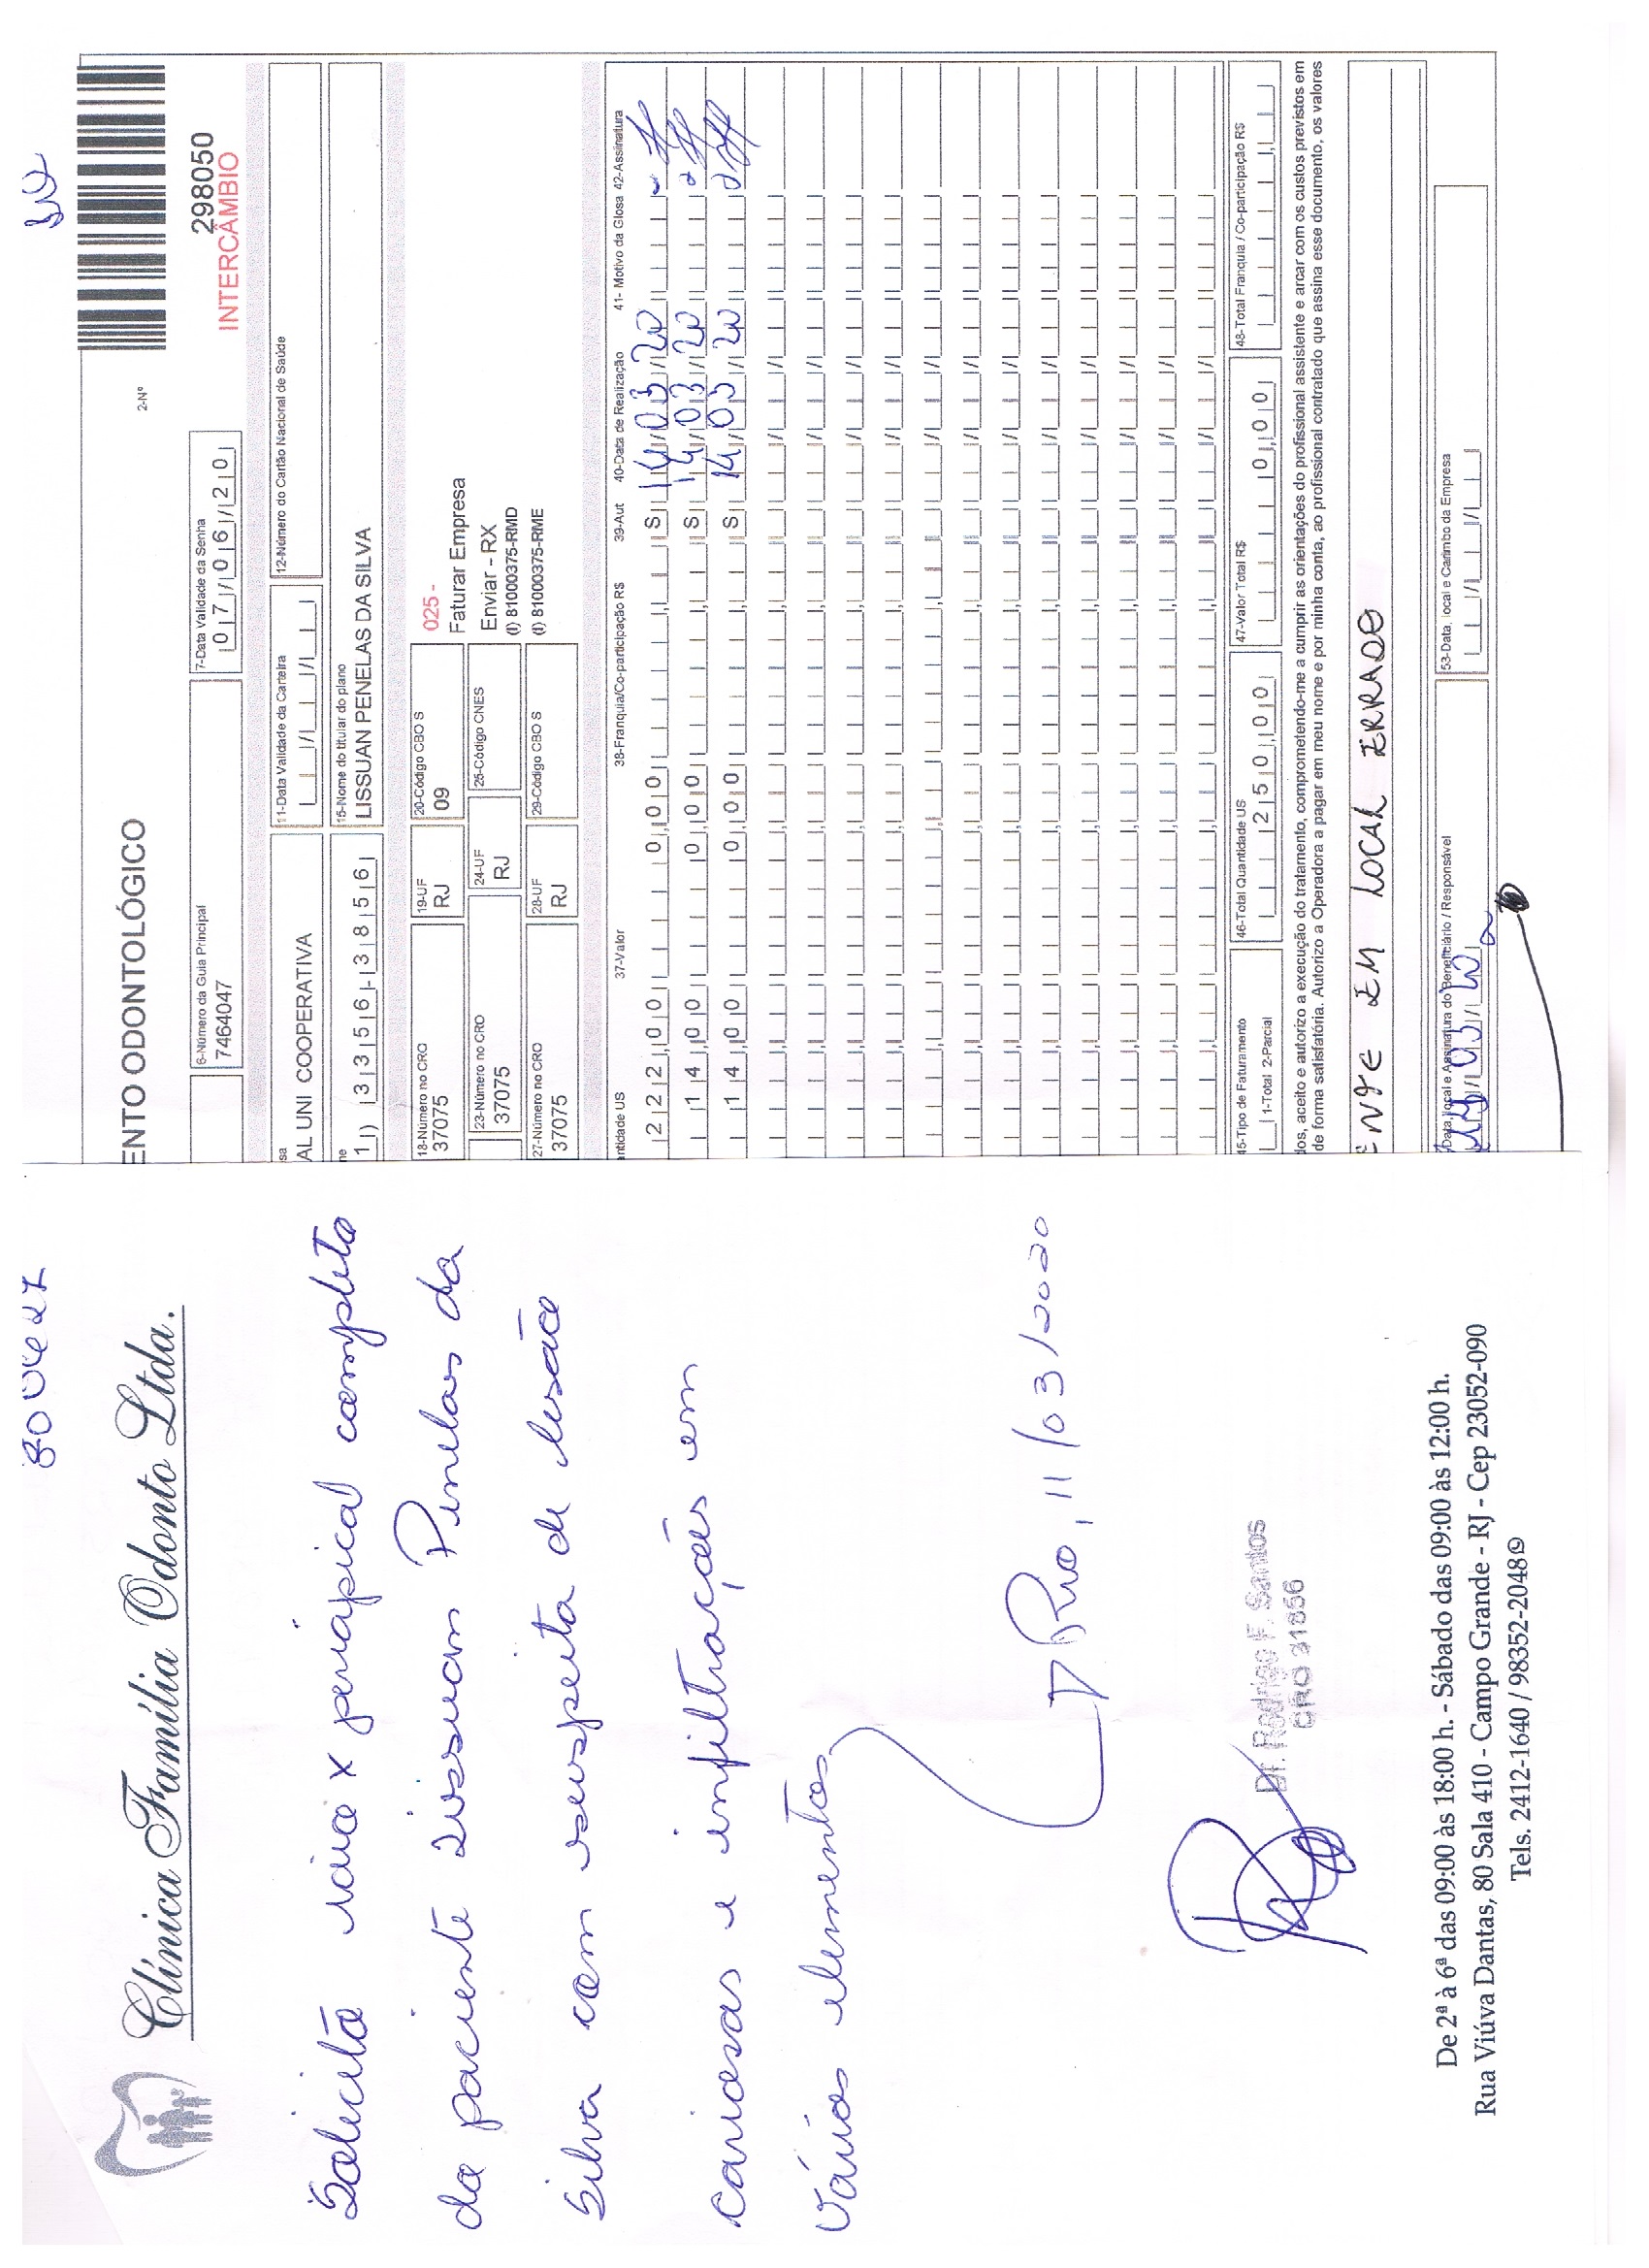 Clínica Família Odonto Ltda.
Solicito raio x periapical completo
do paciente Lissuan Penelas da
Silva com suspeita de lesão
cariosas e infiltrações em
vários elementos.
Rio, 11/03/2020
Dr. Rodrigo F. Santos
CRO 31866
De 2ª à 6ª das 09:00 às 18:00 h. - Sábado das 09:00 às 12:00 h.
Rua Viúva Dantas, 80 Sala 410 - Campo Grande - RJ - Cep 23052-090
Tels. 2412-1640 / 98352-2048
ENTO ODONTOLÓGICO
2-Nº
298050
INTERCÂMBIO
6-Número da Guia Principal
7464047
7-Data Validade da Senha
07/06/20
sa
AL UNI COOPERATIVA
1-Data Validade da Carteira
12-Número do Cartão Nacional de Saúde
ne
1) 33356-3856
15-Nome do titular do plano
LISSUAN PENELAS DA SILVA
18-Número no CRO
37075
19-UF
RJ
20-Código CBO S
09
025 -
Faturar Empresa
23-Número no CRO
37075
24-UF
RJ
25-Código CNES
Enviar - RX
(I) 81000375-RMD
27-Número no CRO
37075
28-UF
RJ
29-Código CBO S
(I) 81000375-RME
antidade US 37-Valor 38-Franquia/Co-participação R$ 39-Aut 40-Data de Realização 41- Motivo da Glosa 42-Assinatura
222,00 0,00 S 14/03/20
14,00 0,00 S 14/03/20
14,00 0,00 S 14/03/20
45-Tipo de Faturamento
1-Total 2-Parcial
46-Total Quantidade US
250,00
47-Valor Total R$
0,00
48-Total Franquia / Co-participação R$
dos, aceito e autorizo a execução do tratamento, comprometendo-me a cumprir as orientações do profissional assistente e arcar com os custos previstos em
de forma satisfatória. Autorizo a Operadora a pagar em meu nome e por minha conta, ao profissional contratado que assina esse documento, os valores
ENTE EM LOCAL ERRADO
Data, local e Assinatura do Beneficiário / Responsável
53-Data, local e Carimbo da Empresa